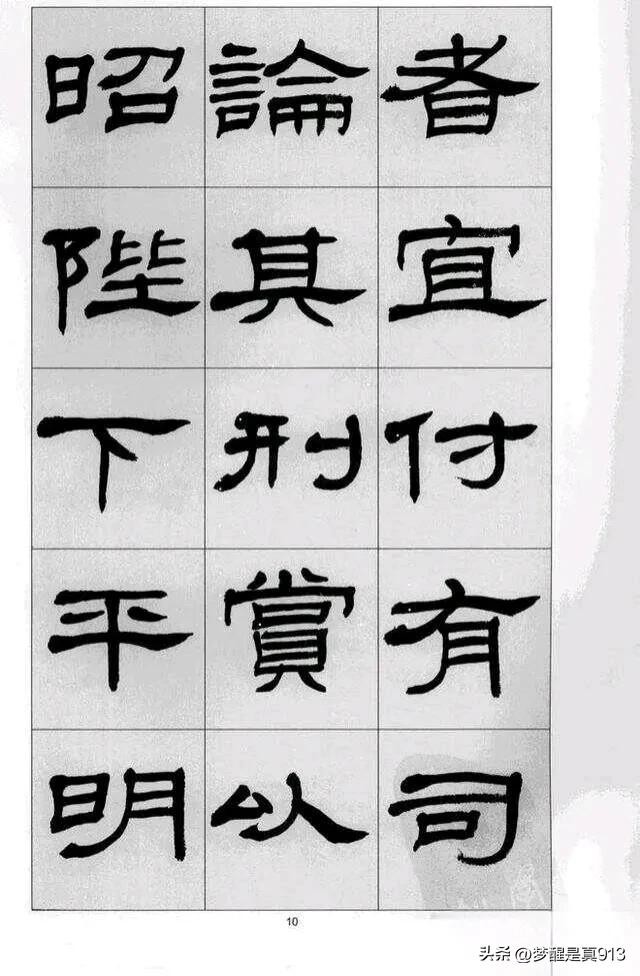 者宜付有司
論其刑賞以
昭陛下平明
10
头条 @梦醒是真913